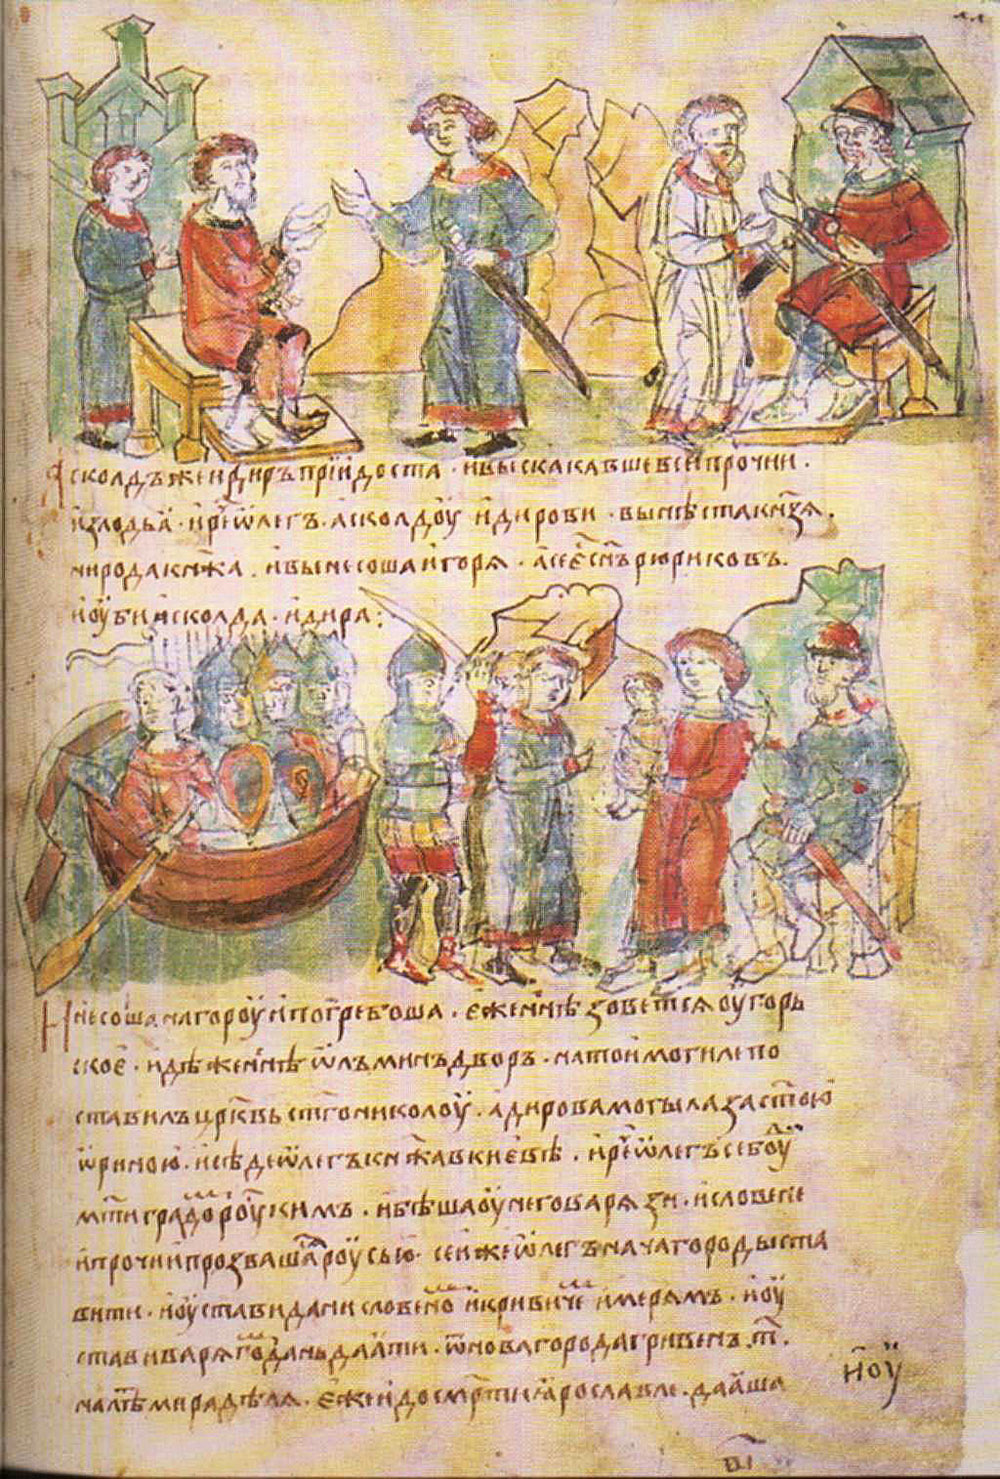 Асколдъ же и Диръ прїидоста · и выскакавше вси прочии ·
из лодьꙗ · и рⷱ҇е ѡлегъ · асколдоу и дирови · вы нѣста кнѧзѧ ·
ни рода кнѧжа · и вынесоша игорѧ · а се єс҇ сн҃ъ рюриковъ ·
и оубиша асколда · и дира :
И несоша на гороу и погребоша · єже ннѣ зоветсѧ оугорь
скоє · идѣже ннѣ ѡлъминъ дворъ · на тои могиле по
ставилъ црк҃вь ст҃го николоу · а дирова могыла за ст҃ою
ѡриною · и сѣде ѡлегъ кнѧжа в киевѣ · и рⷱ҇е ѡлегъ се боу
мт҃и градо роускимъ · и бѣша оу него варѧзи · и словене
и прочии прозвашасѧ роусью · сеи же ѡлегъ нача городы ста
вити · и оустави дани словено и кривиче и мерѧмъ · и оу
стави варѧго дань даꙗти · ѿ новагорода гривенъ · т҃ ·
на лѣ мира дѣлѧ · єже и до смр҃ти ꙗрославле · даꙗша
и оу